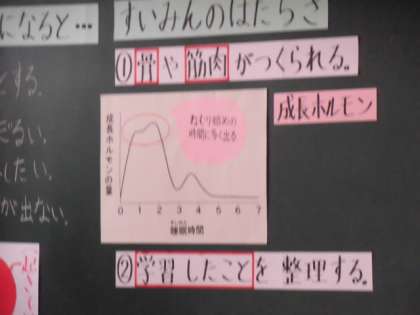 になると…
すいみんのはたらき
①骨や筋肉がつくられる。
とする。
だるい。
したい。
が出ない。
成長ホルモンの量
ねむり始めの
時間に多く出る
成長ホルモン
0 1 2 3 4 5 6 7
すいみん
睡眠時間
②学習したことを整理する。